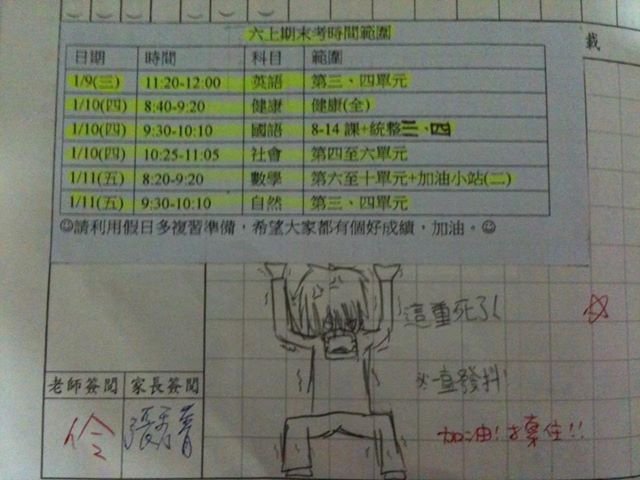 六上期末考時間範圍
日期 時間 科目 範圍
1/9(三) 11:20-12:00 英語 第三、四單元
1/10(四) 8:40-9:20 健康 健康(全)
1/10(四) 9:30-10:10 國語 8-14 課+統整三、四
1/10(四) 10:25-11:05 社會 第四至六單元
1/11(五) 8:20-9:20 數學 第六至十單元+加油小站(二)
1/11(五) 9:30-10:10 自然 第三、四單元
☺請利用假日多複習準備，希望大家都有個好成績，加油。☺
載
這重死了!
一直發抖!
加油!才棄住!!
老師簽閱 家長簽閱